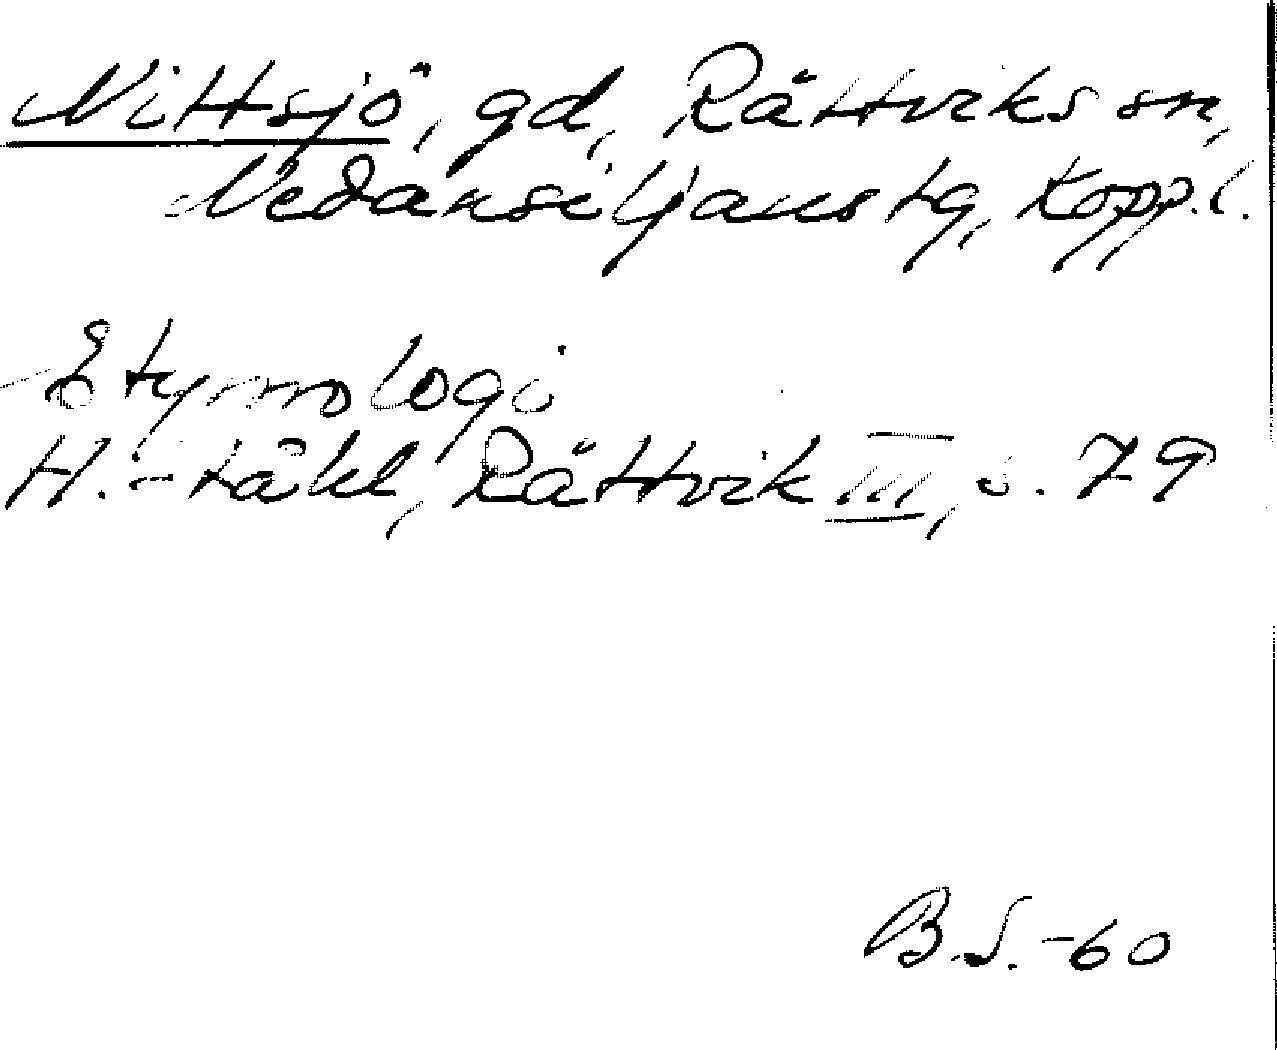 Nittsjö, gd, Rättviks sn,
Nedansiljans tg, Kopp.l.
Etymologi
H. Ståhl, Rättvik III, s. 79
B.S. -60